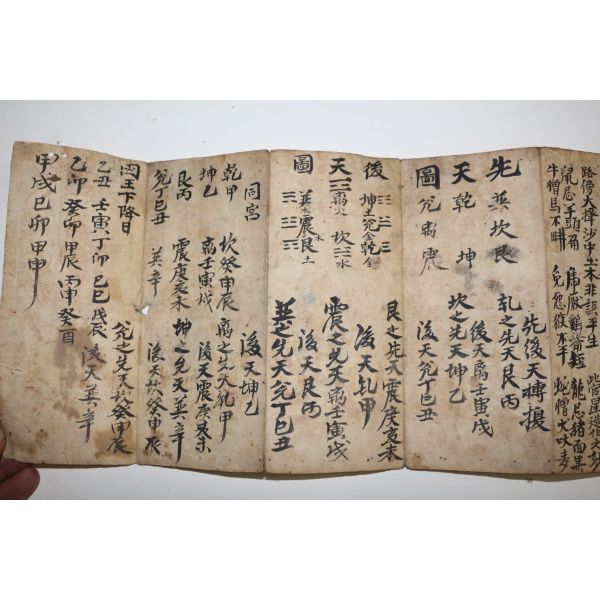 路傍大擇沙中土木非誤平生
鼠忌羊頭角 虎厭鷄嘴短 龍忌猪面黑
牛憎馬不畊 兎怨猴不平
先 巽坎艮
天 乾 坤
圖 兌离震
先後天轉換
乹之先天艮丙
後天离壬寅戌
坎之先天坤乙
後天兌丁巳丑
後 坤土兌金乾金
天 离火 坎水
圖 巽木震木艮土
艮之先天震庚亥未
後天乹甲
震之先天离壬寅戌
後天艮丙
巽之先天兌丁巳丑
後天坤乙
同宮
乾甲 坎癸甲辰 离之先天乹甲
坤乙 离壬寅戌 後天震庚亥未
艮丙 震庚亥未 坤之先天巽辛
兌丁巳丑 巽辛 後天坎癸甲辰
兌之先天坎癸甲辰
王下降日
乙丑 壬寅 丁卯 己巳 戊辰 後天巽辛
乙卯 癸卯 甲辰 丙申 癸酉
甲戌 己卯 甲申